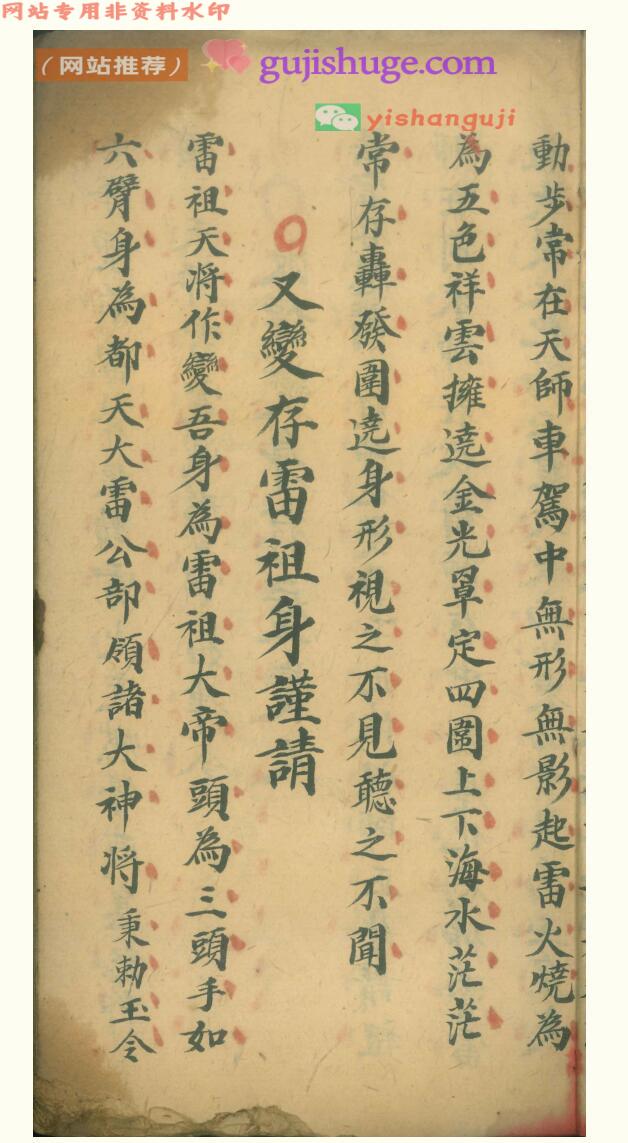 网站专用非资料水印
（网站推荐）
gujishuge.com
yishanguji
動步常在天師車駕中無形無影起雷火燒為
為五色祥雲擁遶金光罩定四圍上下海水茫茫
常存轟發圍遶身形視之不見聽之不聞
又變存雷祖身謹請
雷祖天將作變吾身為雷祖大帝頭為三頭手如
六臂身為都天大雷公部領諸大神將秉勅玉令